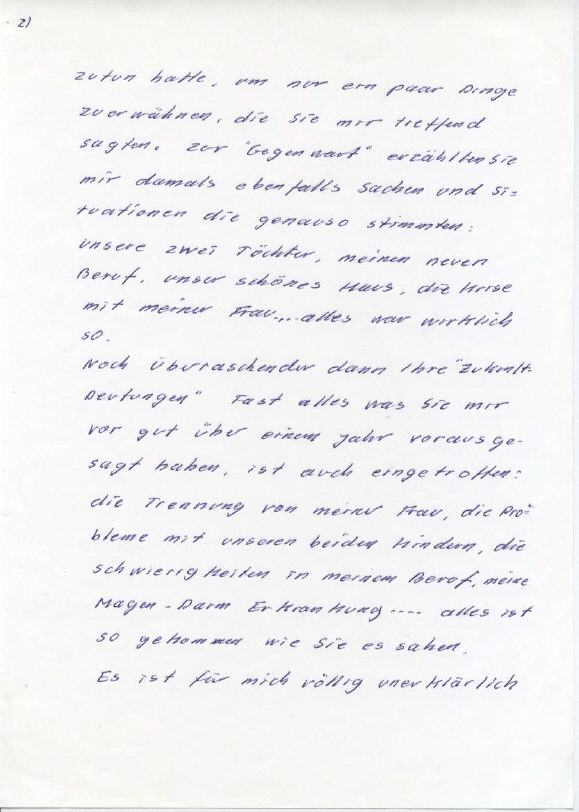 2)
zutun hatte, um nur ein paar Dinge
zu erwähnen, die Sie mir treffend
sagten. Zur "Gegenwart" erzählten Sie
mir damals ebenfalls Sachen und Si=
tuationen die genauso stimmten:
unsere zwei Töchter, meinen neuen
Beruf, unser schönes Haus, die Krise
mit meiner Frau,... alles war wirklich
so.
Noch überaschender dann Ihre "Zukunft-
Deutungen" Fast alles was Sie mir
vor gut über einem Jahr vorausge-
sagt haben, ist auch eingetroffen:
die Trennung von meiner Frau, die Pro=
bleme mit unseren beiden Kindern, die
schwierigkeiten in meinem Beruf, meine
Magen-Darm Erkrankung.... alles ist
so gekommen wie Sie es sahen.
Es ist für mich völlig unerklärlich